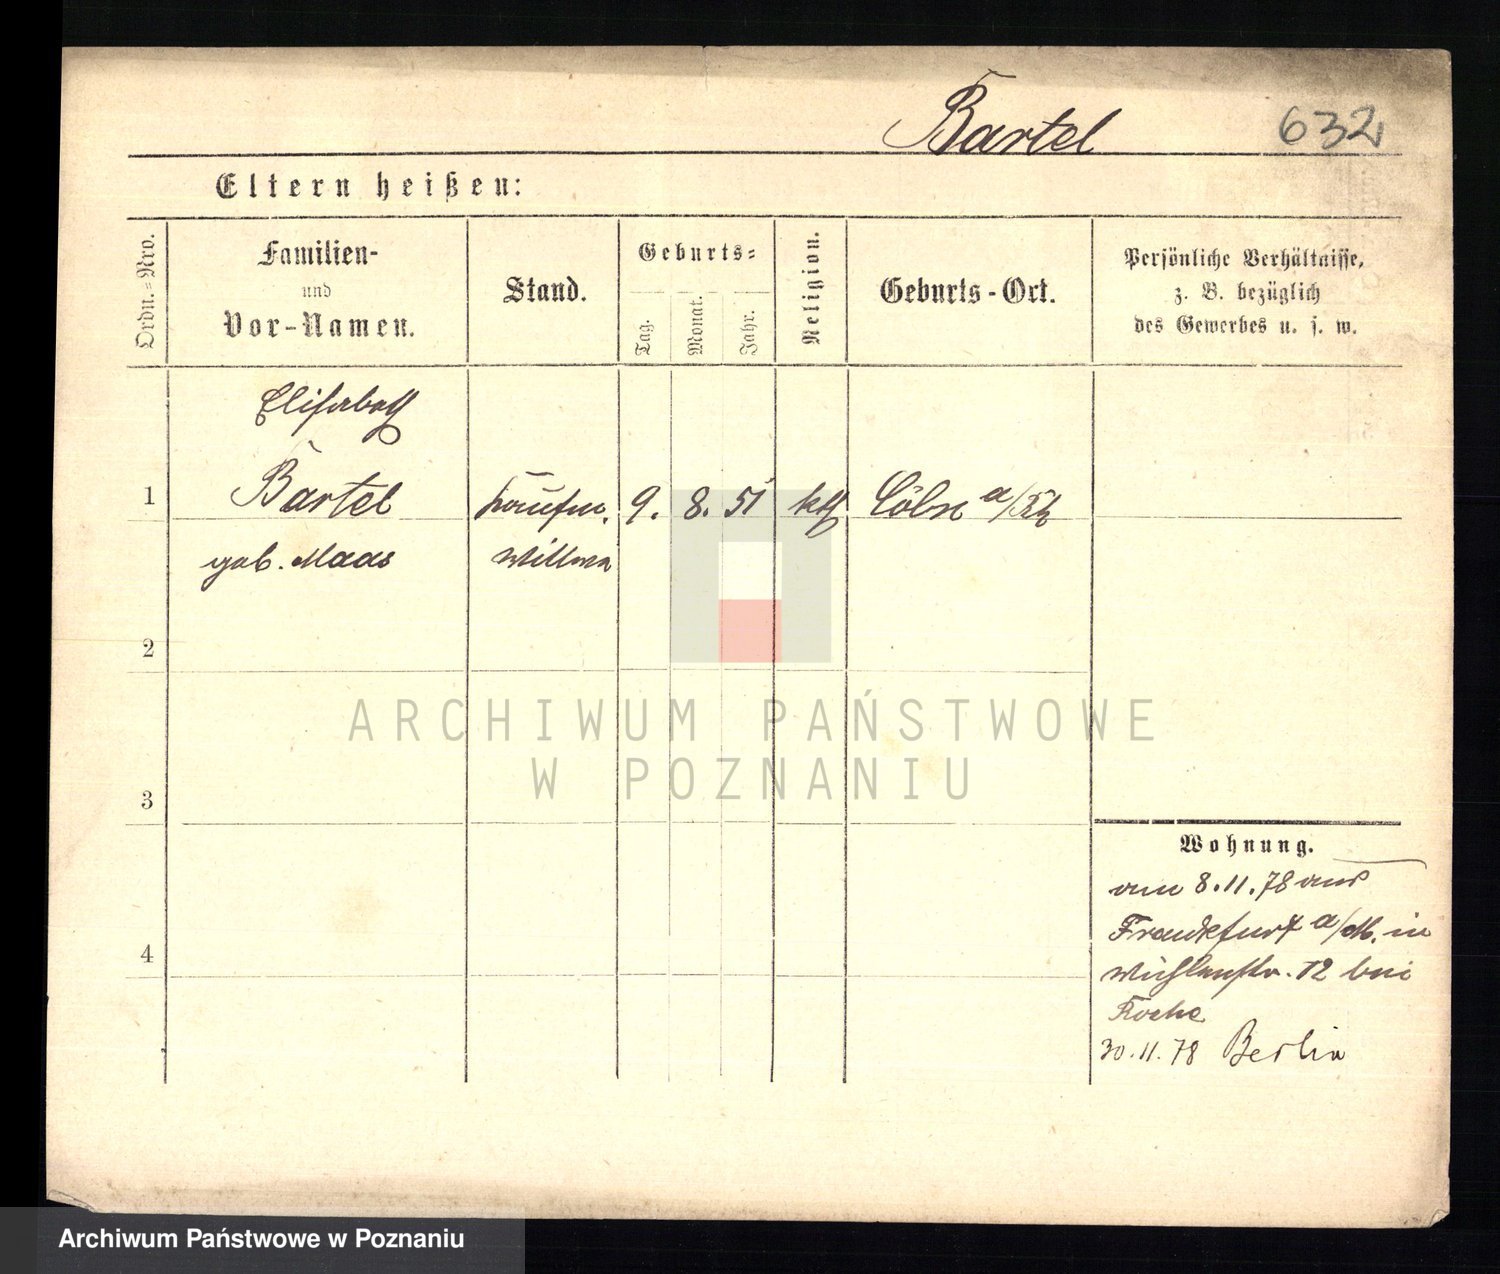 Bartel 632
Eltern heißen:
Ordn.-Nro.
Familien-
und
Vor-Namen.
Stand.
Geburts-
Tag.
Monat.
Jahr.
Religion.
Geburts-Ort.
Persönliche Verhältnisse,
z. B. bezüglich
des Gewerbes u. s. w.
Elisabeth
1 Bartel Kaufm. 9. 8. 51 kth Cöln a/Rh
geb. Maas Wittwe
2
3
4
Wohnung.
am 8.11.78 aus
Frankfurt a/M. in
Mühlenstr. 12 bei
Roche
30.11.78 Berlin
ARCHIWUM PAŃSTWOWE
W POZNANIU
Archiwum Państwowe w Poznaniu